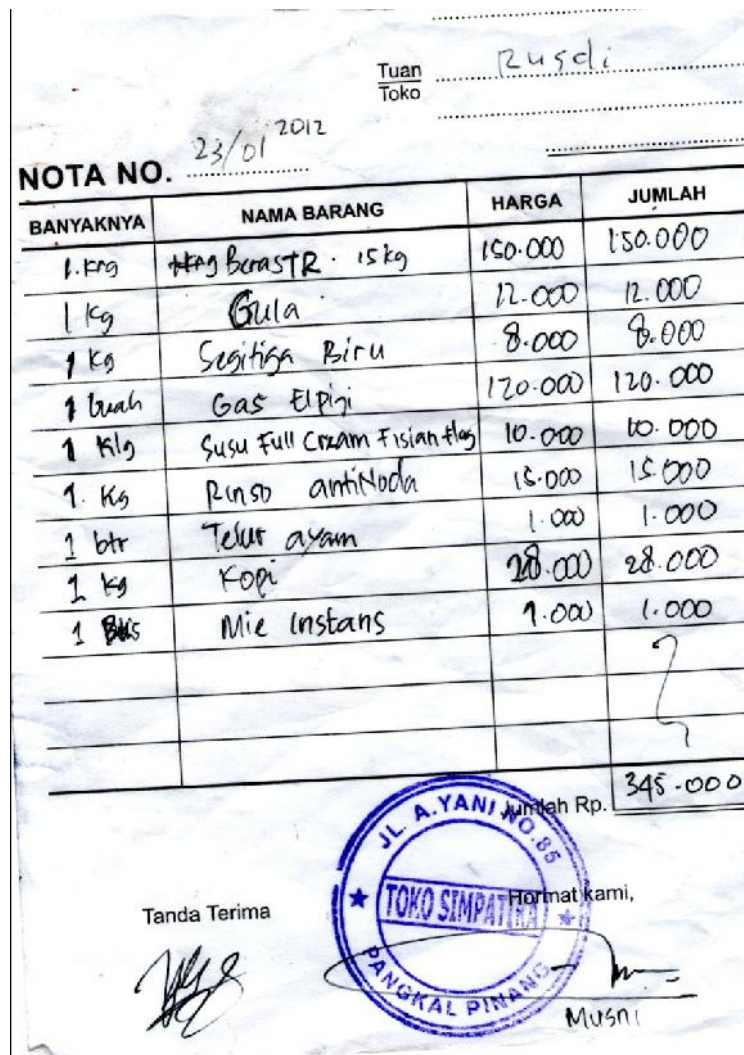 Tuan Rusdi
Toko
NOTA NO. 23/01 2012
BANYAKNYA NAMA BARANG HARGA JUMLAH
1.krg Beras TR. 15 kg 150.000 150.000
1 Kg Gula 12.000 12.000
1 Kg Segitiga Biru 8.000 8.000
1 buah Gas Elpigi 120.000 120.000
1 Klg Susu Full Cream 10.000 10.000
1. Kg Rinso antiNoda 15.000 15.000
1 btr Telur ayam 1.000 1.000
1 kg Kopi 28.000 28.000
1 Mie instans 1.000 1.000
Jumlah Rp. 345.000
JL. A.YANI NO.85
TOKO SIMPATIKA
PANGKAL PINANG
Tanda Terima Hormat kami,
Musni